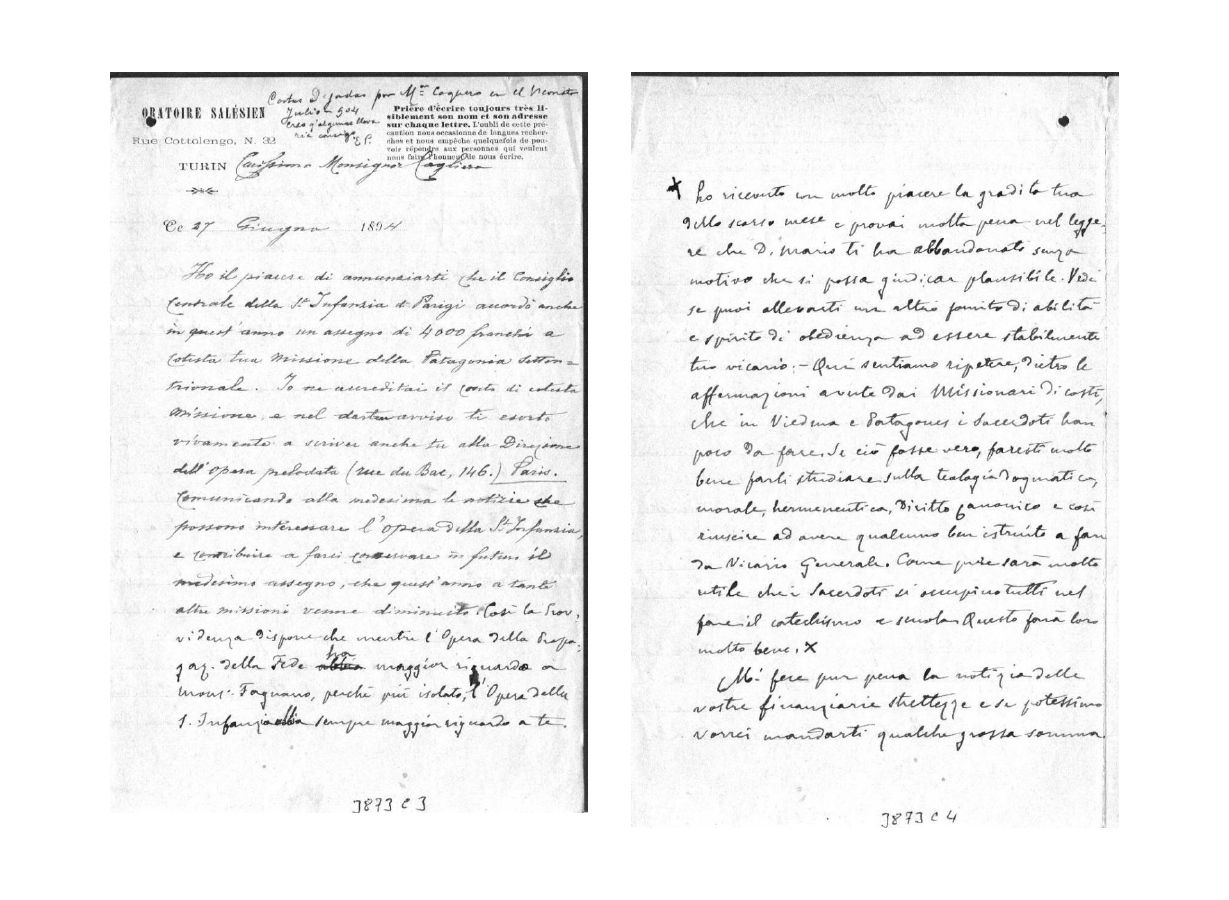 Cartas dejadas por Mr Cagliero en el Vicariato
Julio 904
ORATOIRE SALÉSIEN
Rue Cottolengo, N. 32
TURIN
Prière d'écrire toujours très li-
siblement son nom et son adresse
sur chaque lettre. L'oubli de cette pré-
caution nous occasionne de longues recher-
ches et nous empêche quelquefois de pou-
voir répondre aux personnes qui veulent
nous faire l'honneur de nous écrire.
Carissimo Monsignor Cagliero
Ce 27 Giugno 1894
Ho il piacere di annunziarti che il Consiglio
Centrale della Sta Infanzia di Parigi accordò anche
in quest'anno un assegno di 4000 franchi a
cotesta tua Missione della Patagonia Setten=
trionale. Io ne accreditai il conto di cotesta
Missione, e nel dartene avviso ti esorto
vivamente a scriver anche tu alla Direzione
dell'Opera prelodata (rue du Bac, 146.) Paris.
Comunicando alla medesima le notizie che
possono interessare l'Opera della Sta Infanzia,
e contribuire a farci conservare in futuro il
medesimo assegno, che quest'anno a tante
altre missioni venne diminuito. Così la Prov-
videnza dispone che mentre l'Opera della Propa-
gaz. della Fede abbia ha maggior riguardo a
mons. Fagnano, perchè più isolato, l'Opera della
S. Infanzia abbia sempre maggior riguardo a te.
3873 C 3
X ho ricevuto con molto piacere la gradita tua
dello scorso mese e provai molta pena nel legge-
re che D. Mario ti ha abbandonato senza
motivo che si possa giudicar plausibile. Vedi
se puoi allevarti un altro fornito di abilità
e spirito di obbedienza ad essere stabilmente
tuo vicario. – Qui sentiamo ripetere, dietro le
affermazioni avute dai Missionari di costì,
che in Viedma e Patagones i Sacerdoti han
poco da fare. Se ciò fosse vero, faresti molto
bene farli studiare sulla teologia dogmatica,
morale, hermeneutica, Diritto canonico e così
riuscire ad avere qualcuno ben istruito a fare
da Vicario Generale. Come pure sarà molto
utile che i Sacerdoti si occupino tutti nel
fare il catechismo e scuola. Questo farà loro
molto bene. X
Mi fece pur pena la notizia delle
vostre finanziarie strettezze e se potessimo
vorrei mandarti qualche grossa somma
3873 C 4